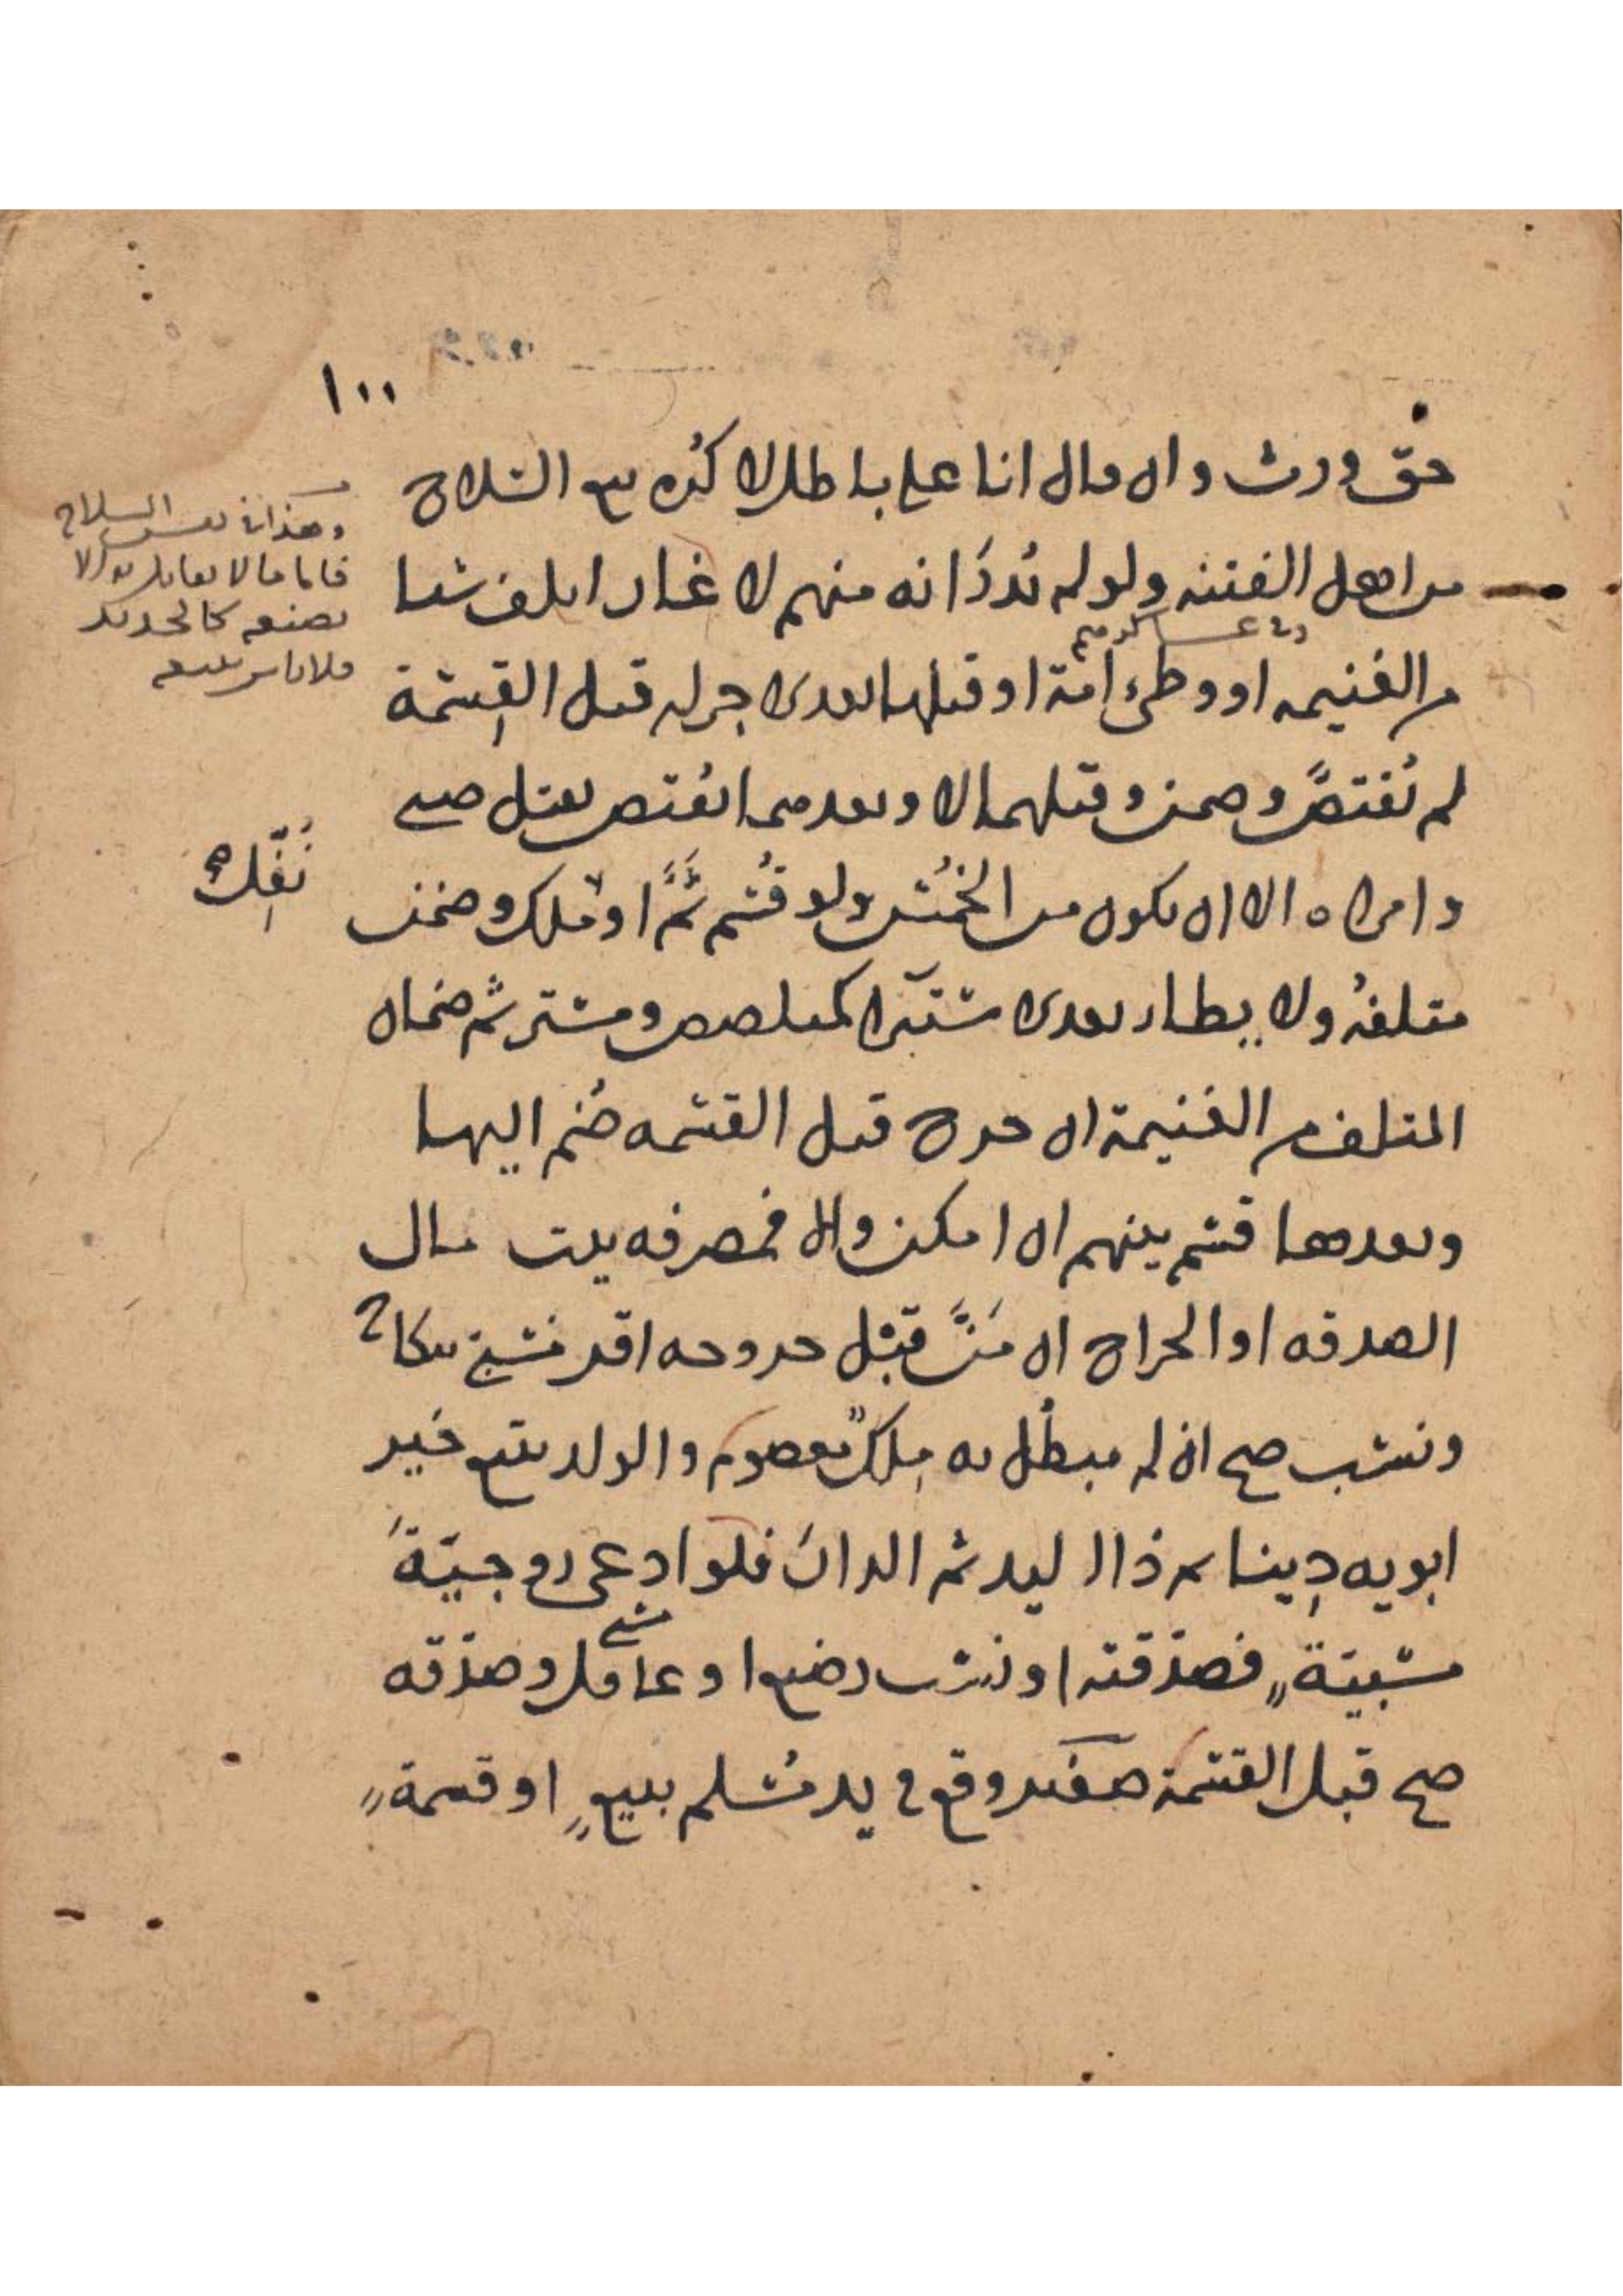 ١٠٠
حق ورث وان قال انا على باطل لا كُره بيع السلاح
من اهل الفتنه ولو لم يُدرَ انه منهم لا غار اتلف شيا
من الغنيمه او وطئ أمة او قتلها بعدى لا جر له قبل القِسمة
لم يُقتصَّ وضمن وقتلهما لا وبعدهما اقتص بقتل صبي
وامراه الا ان يكون من الخُمس ولو قُسم ثَمَّ او مُلك وضمن
متلفهُ ولا يطا بعدى شتبرا كمتلصص ومشتر ثم ضمان
المتلف من الغنيمة ان خرج قبل القسمه ضُم اليها
وبعدها قسم بينهم ان امكن والا فمصرفه بيت مال
الصدقه او الخراج ان مَنَّ قبل خروجه اقر فسخ نكاح
ونسب صح ان لم يبطُل به مِلكٌ معصوم والولد يتبع خير
ابويه دِينا ثم ذا اليد ثم الدارَ فلو ادعى زوجيّةَ
مسبيّةٍ فصدّقته او نسب رضيع او عاقل وصدّقه
صح قبل القسمة كفقد وقع في يد مُسلم ببيعٍ او قسمةٍ
وهذا في نفس السلاح
فاما ما لا يقاتل به الا
بصنعه كالحديد
فلا باس ببيعه
نُفِّل
صبي